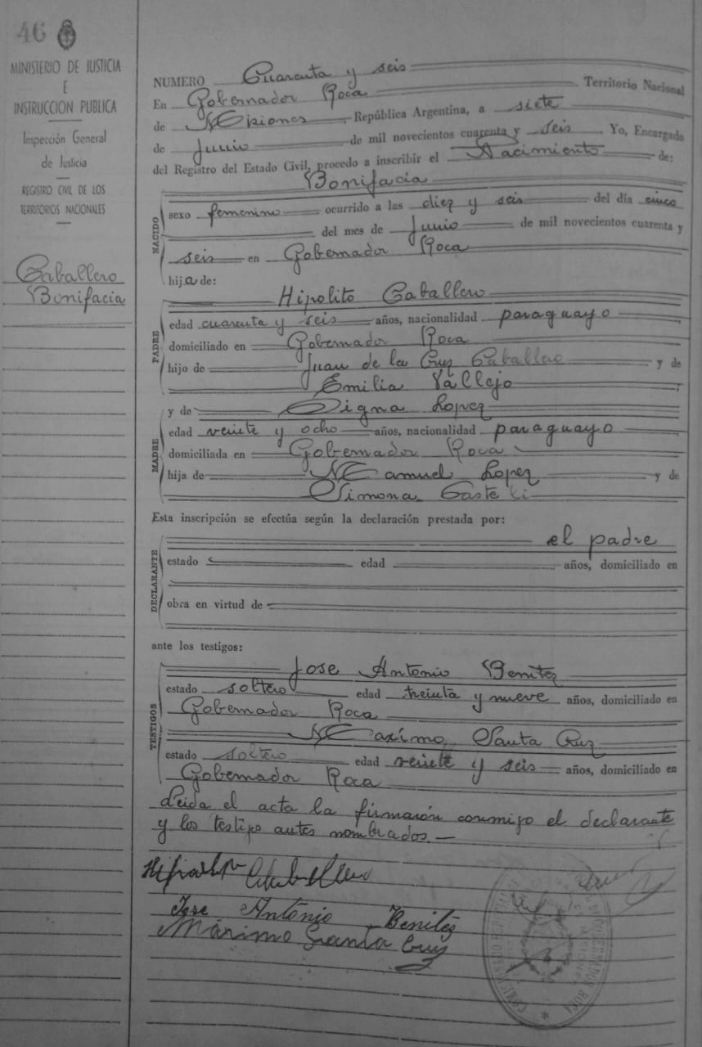 46
MINISTERIO DE JUSTICIA
E
INSTRUCCION PUBLICA
Inspección General
de Justicia
REGISTRO CIVIL DE LOS
TERRITORIOS NACIONALES
Caballero
Bonifacia
NUMERO Cuarenta y seis
En Gobernador Roca Territorio Nacional
de Misiones República Argentina, a siete
de Junio de mil novecientos cuarenta y seis Yo, Encargado
del Registro del Estado Civil, procedo a inscribir el Nacimiento de:
Bonifacia
NACIDO
sexo femenino ocurrido a las diez y seis del día cinco
del mes de Junio de mil novecientos cuarenta y
seis en Gobernador Roca
hija de:
PADRE
Hipolito Caballero
edad cuarenta y seis años, nacionalidad paraguayo
domiciliado en Gobernador Roca
hijo de Juan de la Cruz Caballero y de
Emilia Vallejo
MADRE
y de Digna Lopez
edad veinte y ocho años, nacionalidad paraguayo
domiciliada en Gobernador Roca
hija de Manuel Lopez y de
Simona
Esta inscripción se efectúa según la declaración prestada por:
DECLARANTE
el padre
estado edad años, domiciliado en
obra en virtud de
ante los testigos:
TESTIGOS
Jose Antonio Benitez
estado soltero edad treinta y nueve años, domiciliado en
Gobernador Roca
Maximo Santa Cruz
estado soltero edad veinte y seis años, domiciliado en
Gobernador Roca
Leida el acta la firmaron conmigo el declarante
y los testigo antes nombrados.—
Caballero
Jose Antonio Benitez
Maximo Santa Cruz